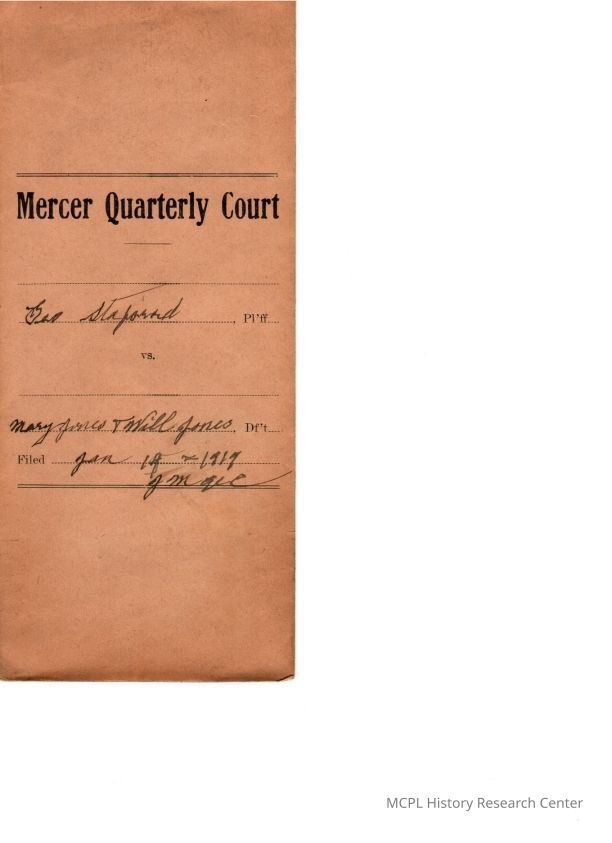 Mercer Quarterly Court
Geo Staforrd, Pl'ff.
vs.
Mary Jones & Will Jones, Df't.
Filed Jan 1919
MCPL History Research Center